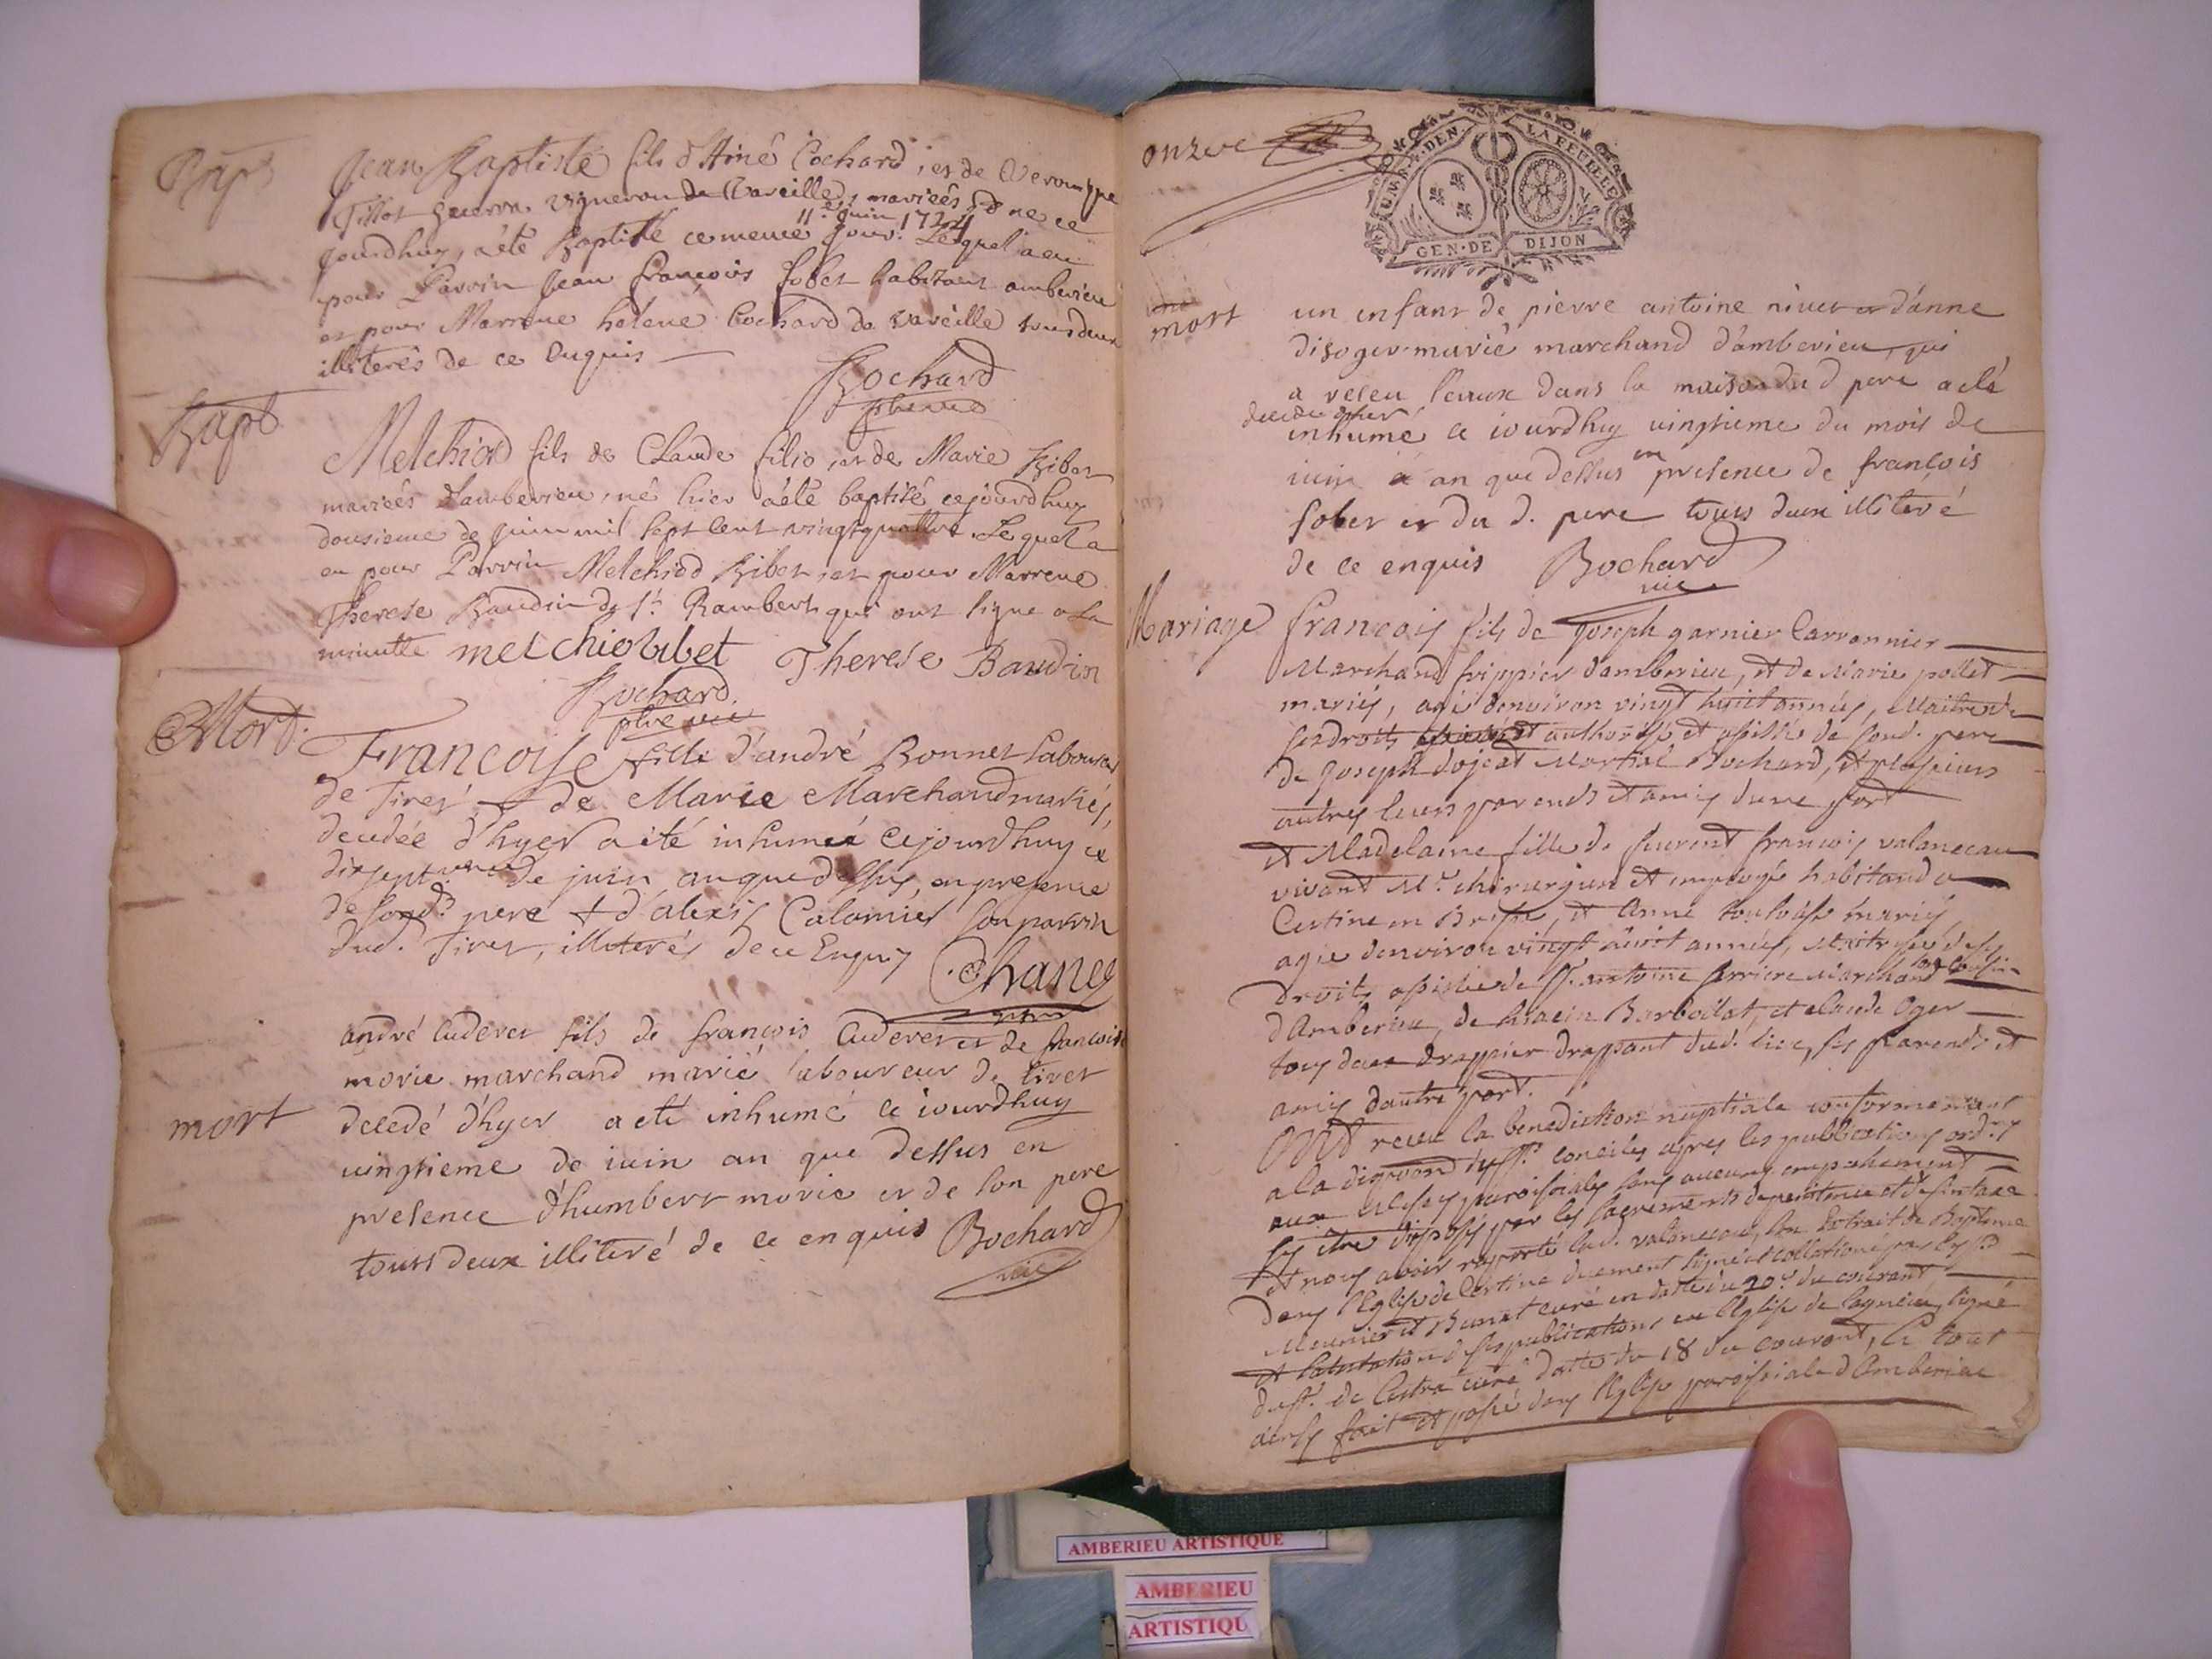 Bapt
Jean Baptiste fils d'Aimé Cochard, et de
vigneron de Vareilles mariées né ce
11e juin 1724
jourdhuy, a été Baptisé ce meme jour. Lequel a eu
pour Parrin Jean François Jobet habitant amberieu
et pour Marrene helene Cochard de Vareille tous deux
illiterés de ce Enquis
Bochard
Bapt
Melchiod fils de Claude filio, et de Marie Ribet
mariés d'amberieu, né hier a été baptisé cejourdhuy
dousieme de juin mil sept cent vingt quattre. Lequel a
eu pour Parrin Melchiod Ribet, et pour Marrene
Therese Baudin de st. Rambert qui ont signé a la
minutte melchio ribet Therese Baudin
Bochard
Mort.
Francoise fille d'andré Bonnet Laboureur
de Tiret, & de Marie Marchand mariés,
decedée d'hyer a été inhumée cejourdhuy
dixsept de juin an que dessus, en presence
de sond. pere & d'alexis Calamier son parrin
dud. Tiret, illiterés de ce Enquis
Chaney
andré Cuderet fils de françois Cuderet et de francoise
morie marchand marié laboureur de tiret
mort
decedé d'hyer a eté inhumé ce iourdhuy
uingtieme de iuin an que dessus en
presence d'humbert morie et de son pere
touts deux illiteré de ce enquis Bochard
vic
onzve
GEN. DE DIJON
LA FEUILLE
mort
un enfant de pierre antoine niuet et d'anne
disoger marié marchand d'amberieu, qui
a receu l'eaux dans la maison du d pere a été
decedé hier
inhumé ce iourdhuy uingtieme du mois de
iuin an que dessus en presence de françois
Jobet et du d. pere touts deux illiteré
de ce enquis Bochard
vic
Mariage
francois fils de Joseph garnier
Marchand frippier d'amberieu, et de Marie pollet
mariés, agé denviron vingt huict années, Maitre de
ses droits authorisé et assisté de sond. pere
de Joseph Martial Bochard, et plusieurs
autres leurs parends et amis dune part
et Madelaine fille de francois valanceau
vivant Mr. chirurgien et habitand a
Certine en Bresse, et Anne mariés
agée denviron vingt années, Maitresse de ses
droits assistée de Sr. antoine Marchand
d'Amberieu, de Barboilat, et claude Oger
tous deux drappier drappant dud. lieu, ses parends et
amis dautre part.
Ont receu la benediction nuptiale conformement
a la conciles apres les publications
aux paroissiales sans aucuns empechement
sy etre disposés par les sacrements de penitence et
et nous avoir raporté lad. valanceau, son Extrait de Bapteme
dans l'Eglise de Certine duement signé et collationé par
Meunier et curé en datte du 20e. du courant,
et l'atestation de ses publications en l'Eglise de lagnieu, signé
curé datté du 18 du courant, Le tout
ainsy fait et passé dans l'Eglise paroissiale d'Amberieu
AMBERIEU ARTISTIQUE
AMBERIEU
ARTISTIQU